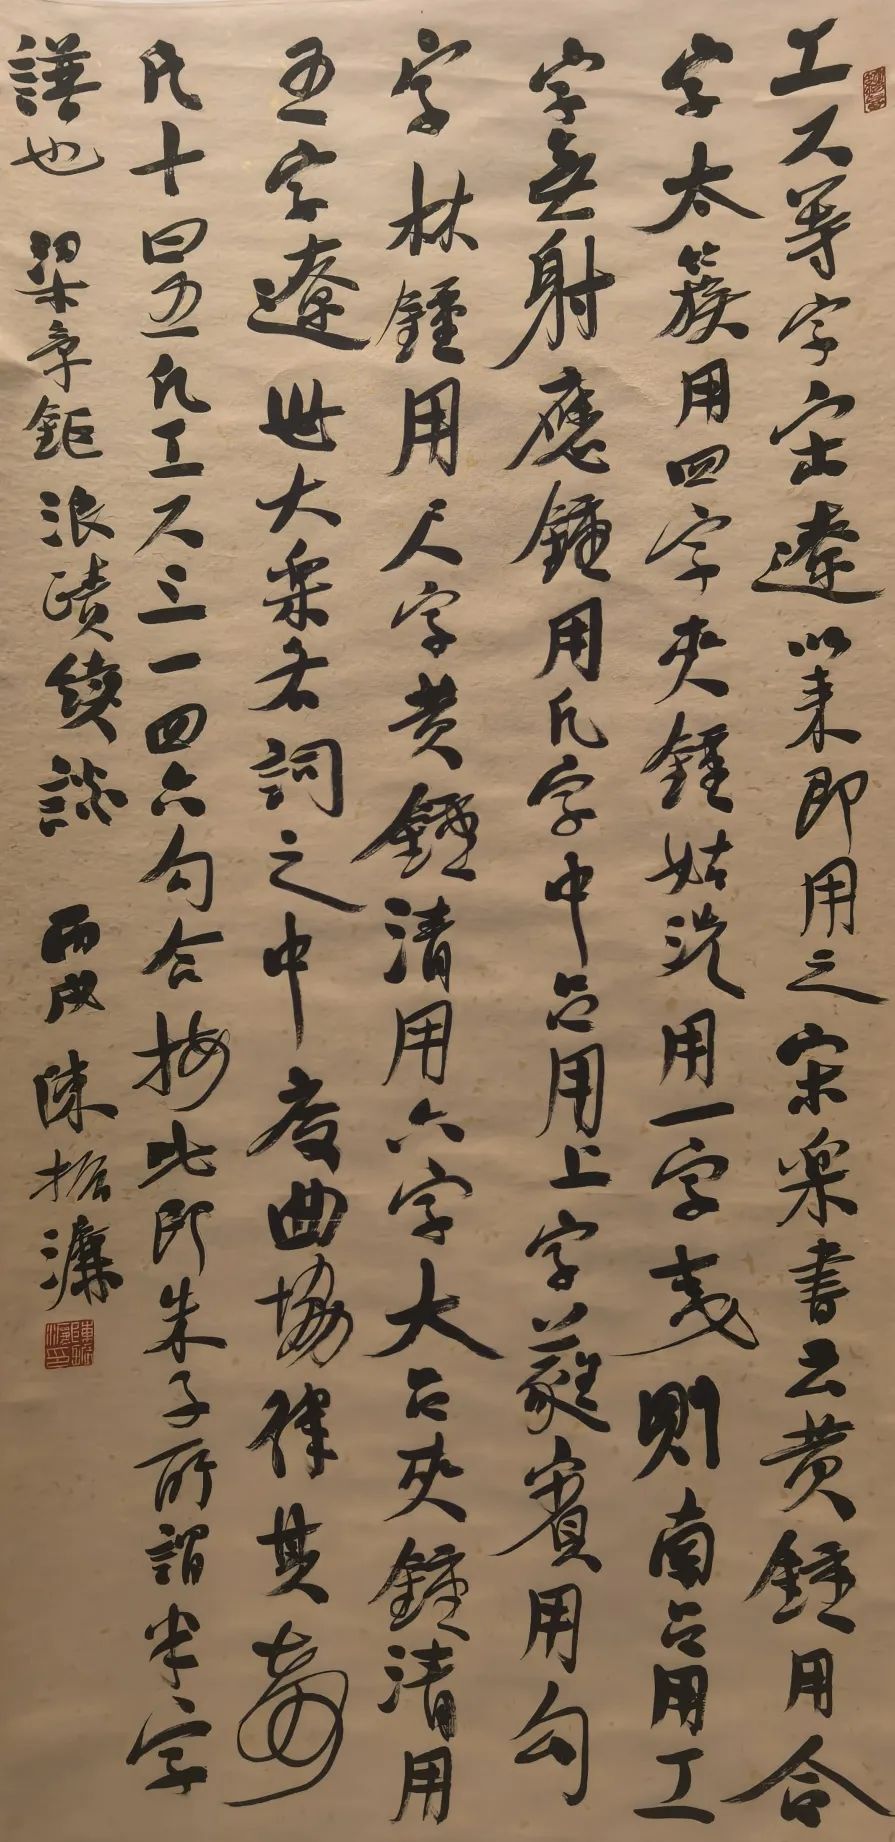 工尺等字宋遼以来即用之宋樂書云黄鍾用合
字太簇用四字夾鍾姑洗用一字夷則南吕用工
字無射應鍾用凡字中吕用上字蕤賓用勾
字林鍾用尺字黄鍾清用六字大吕夾鍾清用
五字遼世大樂各詞之中度曲協律其聲
凡十曰五凡工尺上一四六勾合按此即朱子所謂半字
譜也 梁章鉅浪蹟續談 丙戌 陳振濂